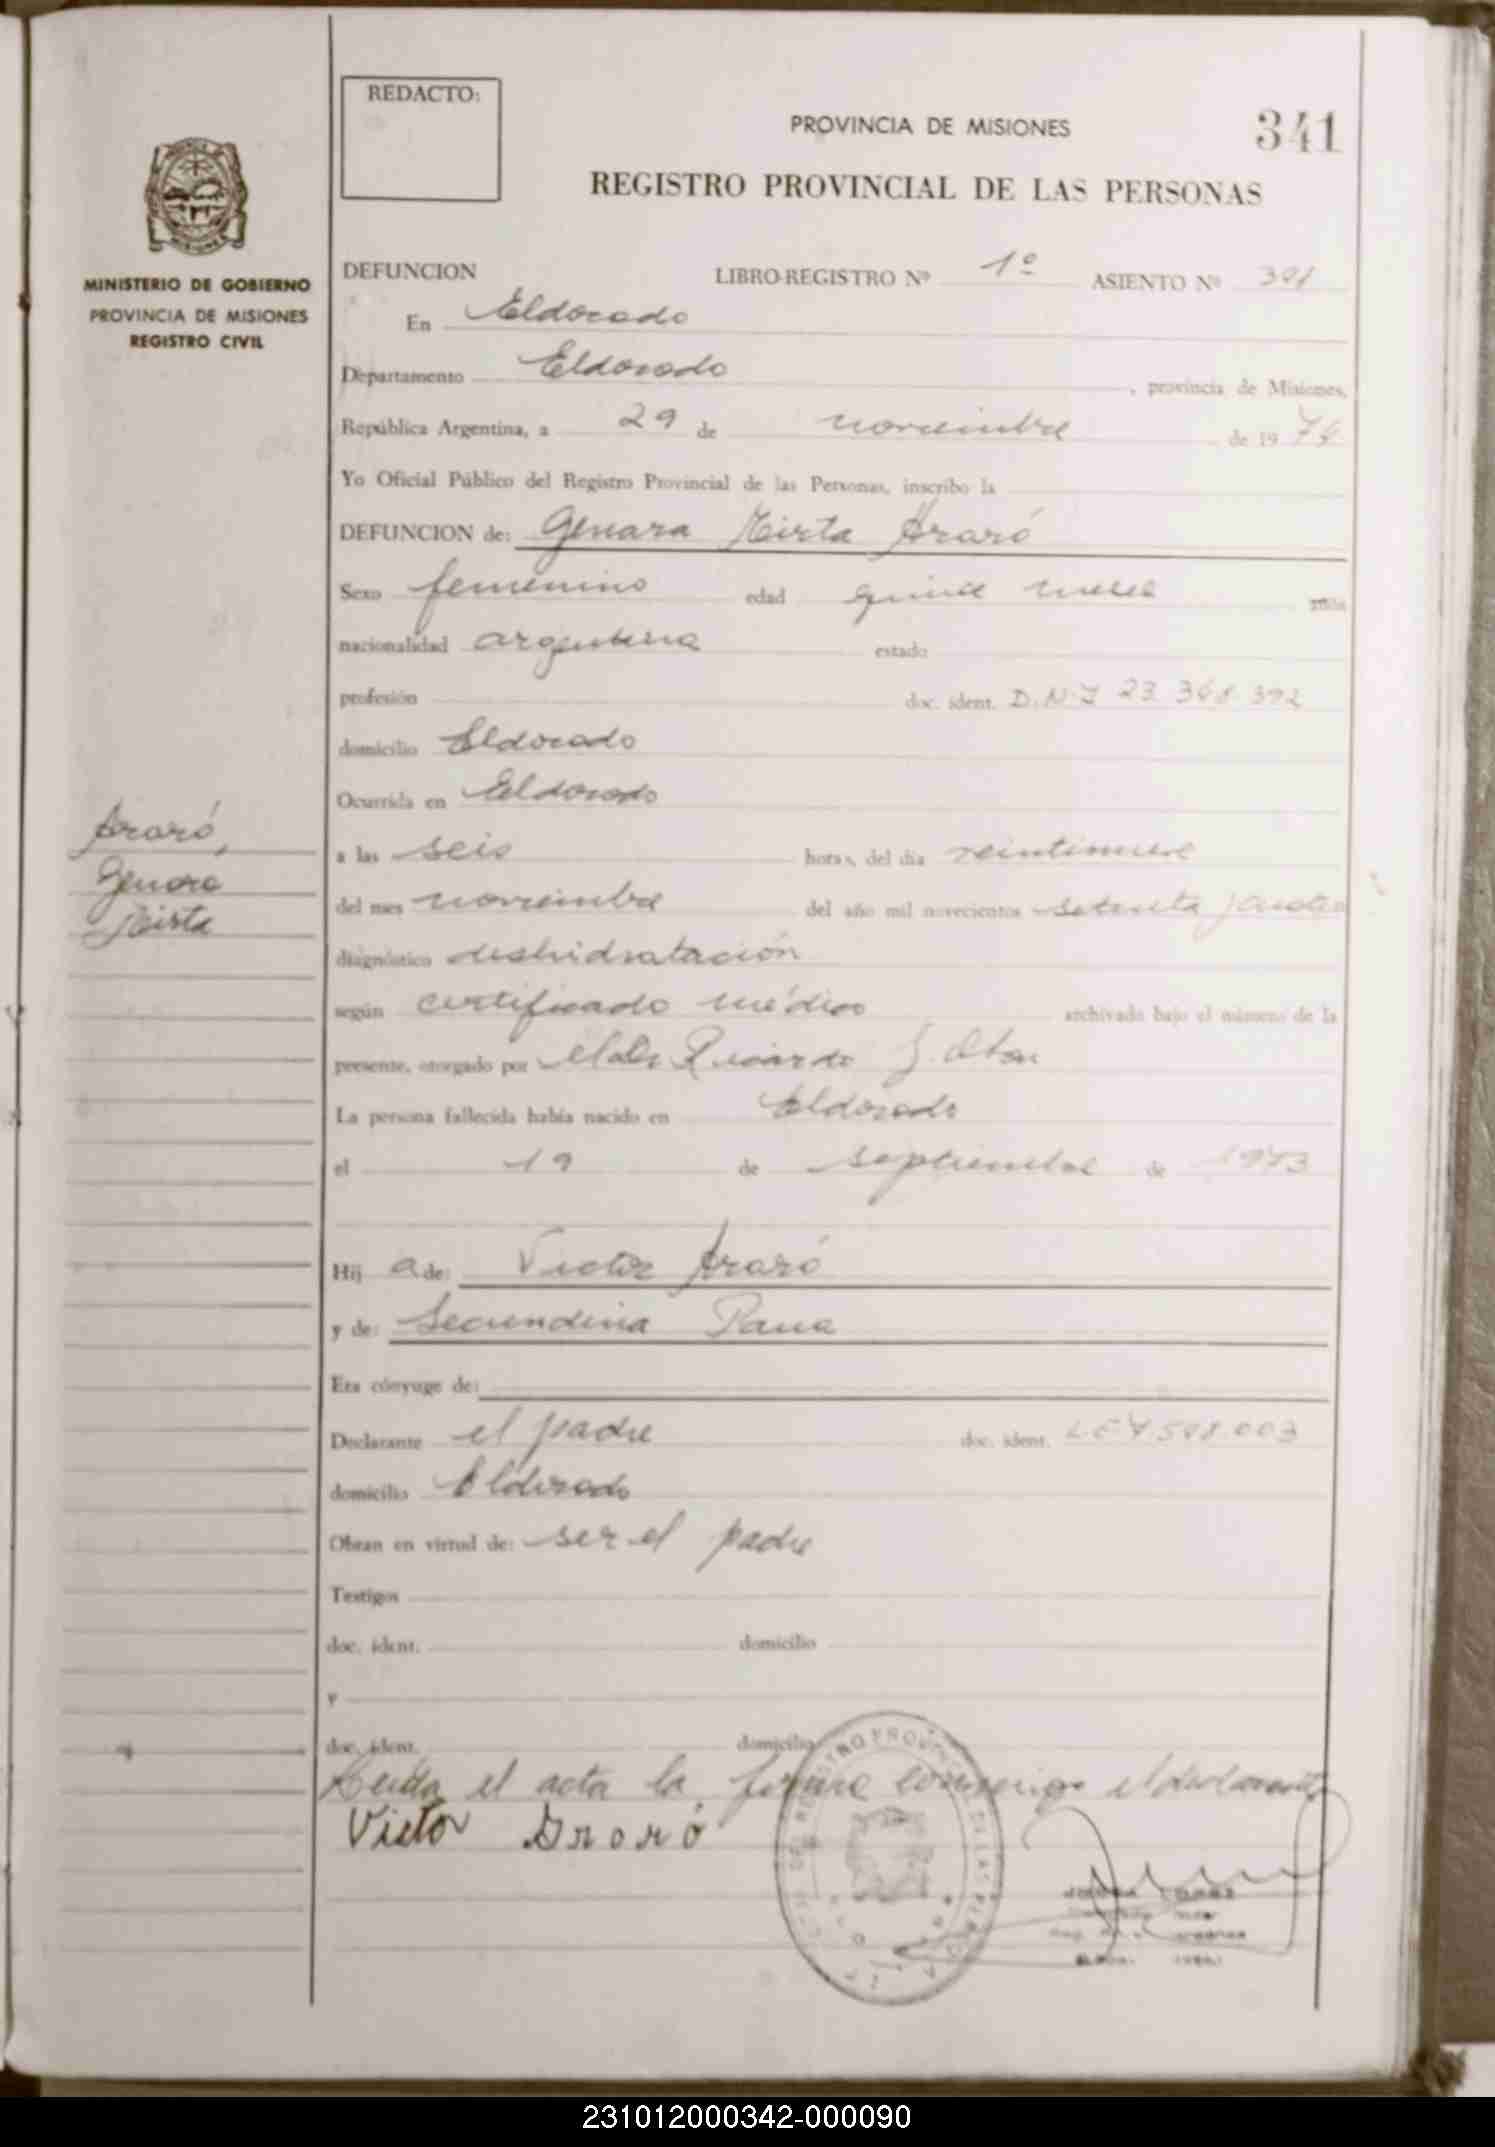 REDACTO:
PROVINCIA DE MISIONES
341
REGISTRO PROVINCIAL DE LAS PERSONAS
MINISTERIO DE GOBIERNO
PROVINCIA DE MISIONES
REGISTRO CIVIL
DEFUNCION LIBRO-REGISTRO Nº 1º ASIENTO Nº 341
En Eldorado
Departamento Eldorado, provincia de Misiones,
República Argentina, a 29 de noviembre de 1974
Yo Oficial Público del Registro Provincial de las Personas, inscribo la
DEFUNCION de: Genara Mirta Araró
Sexo femenino edad quince meses años
nacionalidad argentina estado
profesión doc. ident. D.N.I 23.368.392
domicilio Eldorado
Ocurrida en Eldorado
Araró,
Genara
Mirta
a las seis horas, del día veintinueve
del mes noviembre del año mil novecientos setenta y cuatro
diagnóstico deshidratación
según certificado médico archivado bajo el número de la
presente, otorgado por el Dr Ricardo J.
La persona fallecida había nacido en Eldorado
el 19 de septiembre de 1973
Hij a de: Victor Araró
y de: Secundina
Era cónyuge de:
Declarante el padre doc. ident. L E 7.508.003
domicilio Eldorado
Obran en virtud de: ser el padre
Testigos
doc. ident. domicilio
y
doc. ident. domicilio
Leida el acta la firma conmigo el declarante
Victor Araró
231012000342-000090